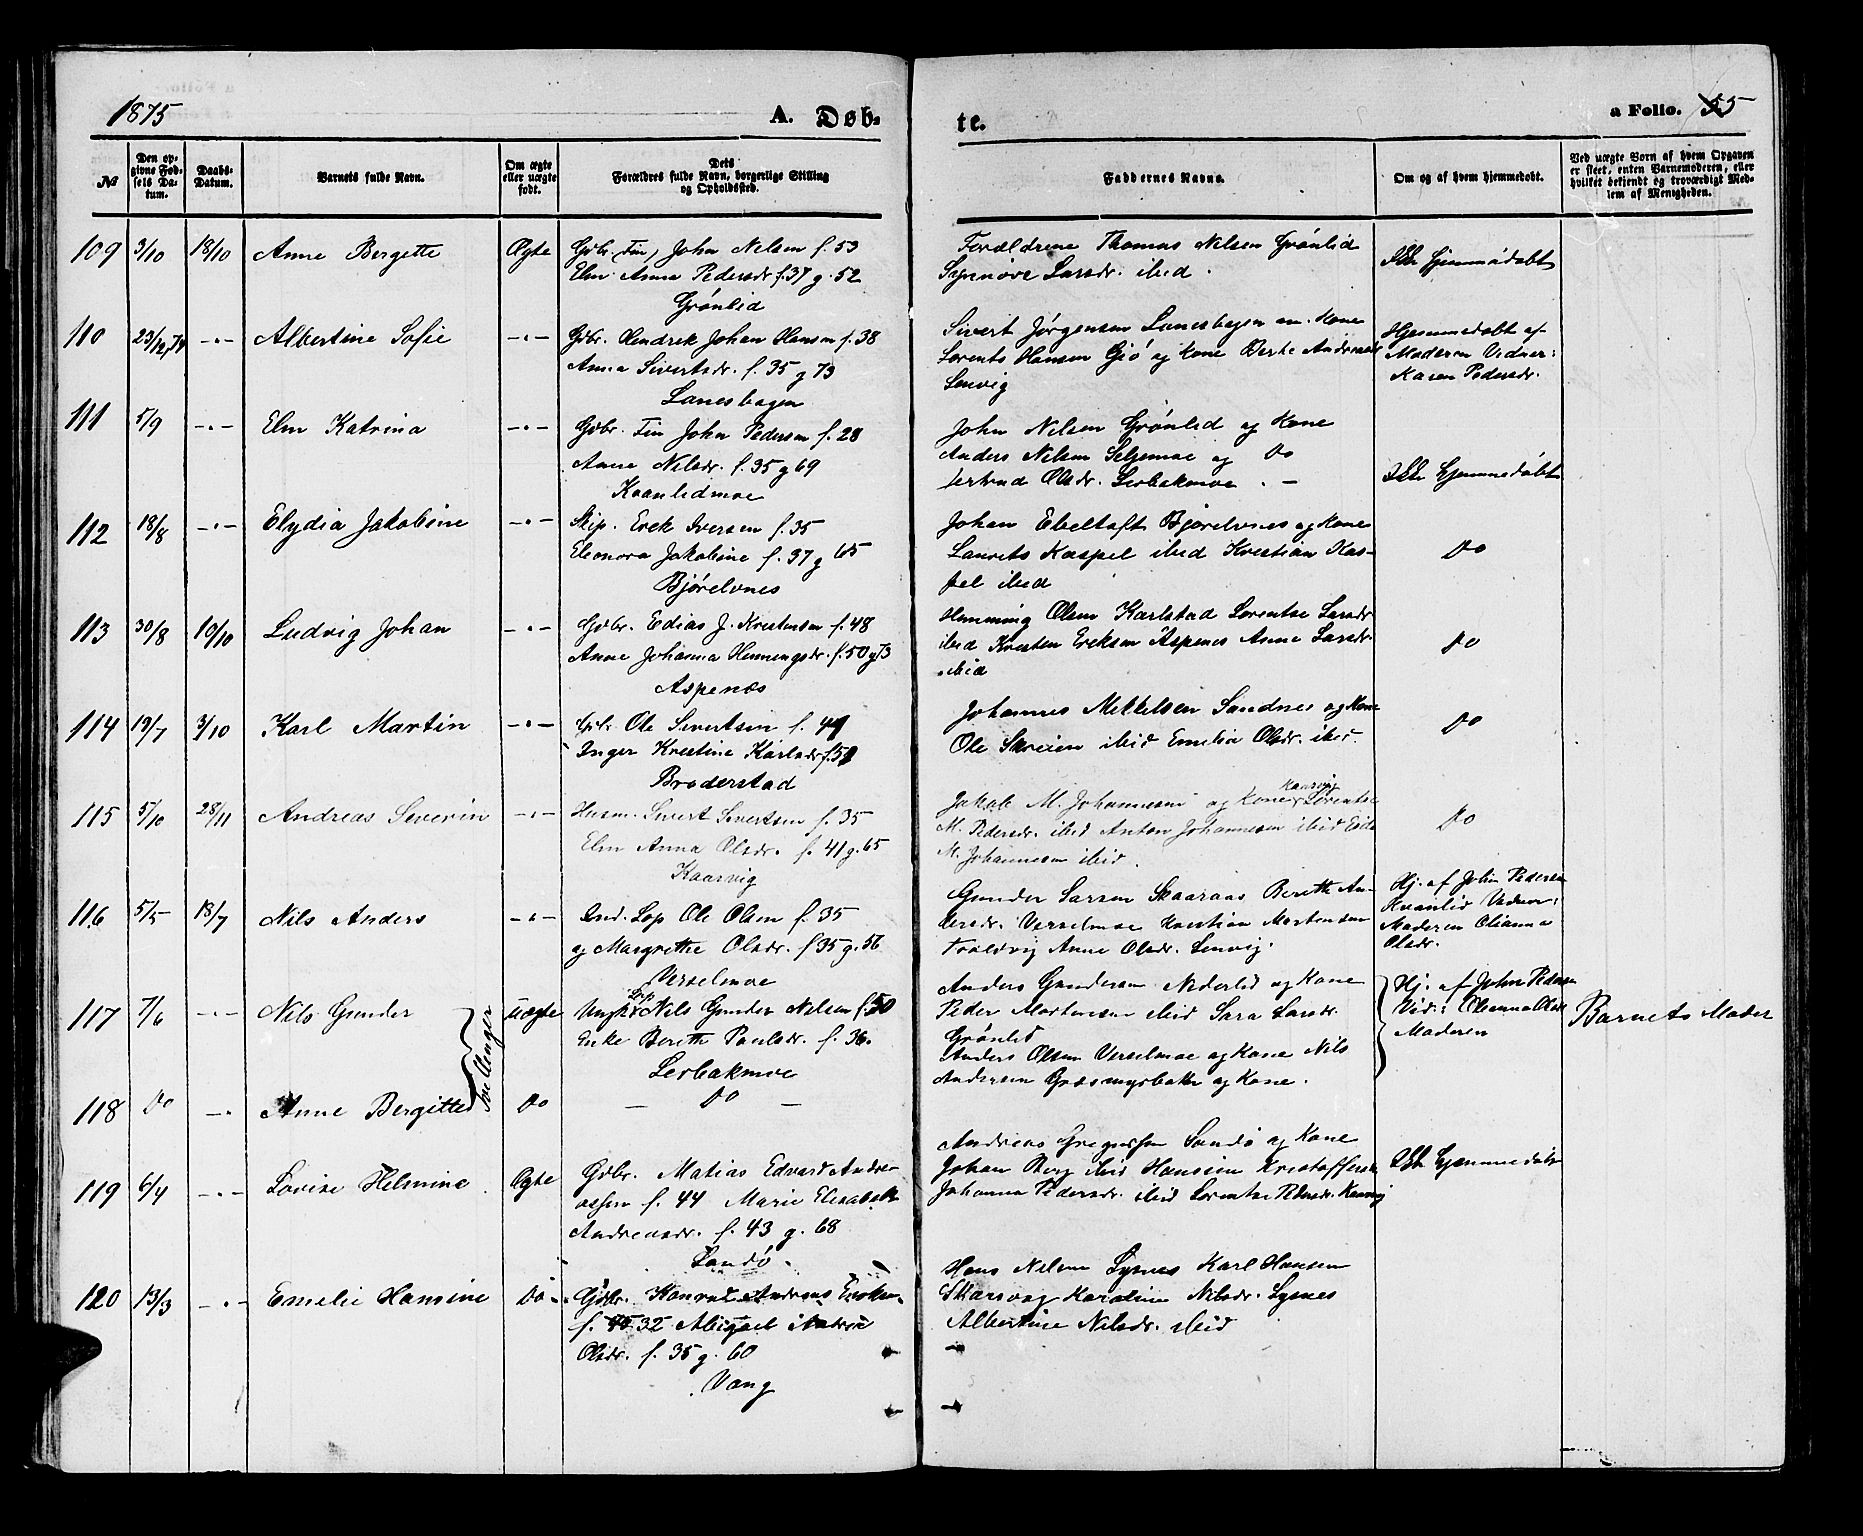 1875
A. Døb-
te.
a Folio. 55
№
Den op-
givne Fød-
sels Da-
tum.
Daabs-
Datum.
Barnets fulde Navn.
Om ægte
eller uægte
født.
Dets
Forældres fulde Navn, borgerlige Stilling
og Opholdssted.
Faddernes Navne.
Om og af hvem hjemmedøbt.
Ved uægte Børn af hvem Opgaven
er skeet, enten Barnemoderen, eller
hvilket bekjendt og troværdigt Med-
lem af Menigheden.
109 3/10 18/10 Anne Bergitte Ægte
Gdbr. Fin, John Nilsen f. 53
Elen Anna Pedersdr f. 37 g. 52
Grönlid
Forældrene Thomas Nilsen Grönlid
Synnöve Larsdr. ibid.
Ikke hjemmedøbt
110 23/12 74 -"- Albertine Sofie -"-
Gdbr. Hendrek Johan Hansen f. 38
Anna Sivertsdr. f. 35 g 73
Lanesbogen
Sivert Jørgensen Lanesbogen en. Kone
Lorents Hansen Gjö og Kone Berte Andreasdr
Lenvig
Hjemmedøbt af
Moderen Vidner:
Karen Pedersdr.
111 5/9 -"- Elen Katrina -"-
Gdbr. Fin John Pedersen f. 28
Anne Nilsdr. f. 35 g 69
Kvanlidmoe
John Nilsen Grönlid og Kone
Anders Nilsen Seljemoe og Do
Jertrud Olsdr. Leibakmoe . -
Ikke hjemmedøbt
112 18/8 -"- Elydia Jakobine -"-
Skip. Erek Iversen f. 35
Eleonora Jakobine f. 37 g 65
Bjørelvnes
Johan Ebeltoft Bjørelvnes og Kone
Laurets Kaspel ibid Kristian Kas-
pel ibid
Do
113 30/8 10/10 Ludvig Johan -"-
Gdbr. Edias J. Kristensen f. 48
Anne Johanna Henningsdr. f. 50 g 73
Aspenes
Henning Olsen Karlstad Lorentse Larsdr
ibid Kresten Ereksen Aspenes Anne Larsdr.
ibid
Do
114 19/7 3/10 Karl Martin -"-
Gdbr. Ole Sivertsen f. 41
Inger Krestine Karlsdr f. 51
Broderstad
Johannes Mikkelsen Sandnes og Kone
Ole Skreien ibid Emelia Olsdr. ibid.
Do
115 5/10 28/11 Andreas Severin -"-
Husm. Sivert Sivertsen f. 35
Elen Anna Olsdr. f. 41 g. 65
Kaarvig
Kaarvig
Jakob M. Johannesen og Kone Lorentse
M. Pedersdr. ibid Anton Johannesen ibid
M. Johannesen ibid.
Do
116 5/5 18/7 Nils Anders -"-
Ind. Lap Ole Olsen f. 35
og Margrethe Olsdr. f 35 g. 56
Verselmoe
Gunder Larsen Skaaraas Berette An-
dersdr. Verselmoe Krestian Mortensen
Troldvig Anne Olsdr. Lenvig.
Hj. af John Pedersen
Kvanlid Vidner:
Moderen Olianna
Olsdr.
117 7/6 -"- Nils Gunder uægte
Lap
Ungkr Nils Gunder Nilsen f. 50
Enke Berith Paulsdr. f. 36.
Leibakmoe
Anders Gundersen Nederlid og Kone
Peder Mortensen ibid Sara Larsdr.
Grönlid
Anders Olsen Verselmoe og Kone Nils
Andersen Græsmyrbak og Kone.
Hj. af John Pedersen
Vid: Olianna Olsdr
Moderen
Barnets Moder
Tvillinger
118 Do -"- Anne Bergitte Do
- Do -
119 6/4 -"- Lovise Helmina Ægte
Gdbr. Matias Edvard Andre-
assen f. 44 Marie Elisabeth
Andreasdr. f. 43 g. 68
Sandö
Andreas Gregussen Sandö og Kone
Johan Berg ibid Hansine Kristoffersdr
Johanna Pedersdr. ibid Lorentse Pedersdr. Kaarvig
Ikke hjemmedøbt
120 13/3 -"- Emelie Hansine Do
Gdbr. Konrad Andreas Eriksen
f. 32 Abigael
Olsdr. f. 35 g. 60
Vang
Hans Nilsen Lysnes Karl Hansen
Skarsvag Karoline Nilsdr. Lysnes
Albertine Nilsdr. ibid